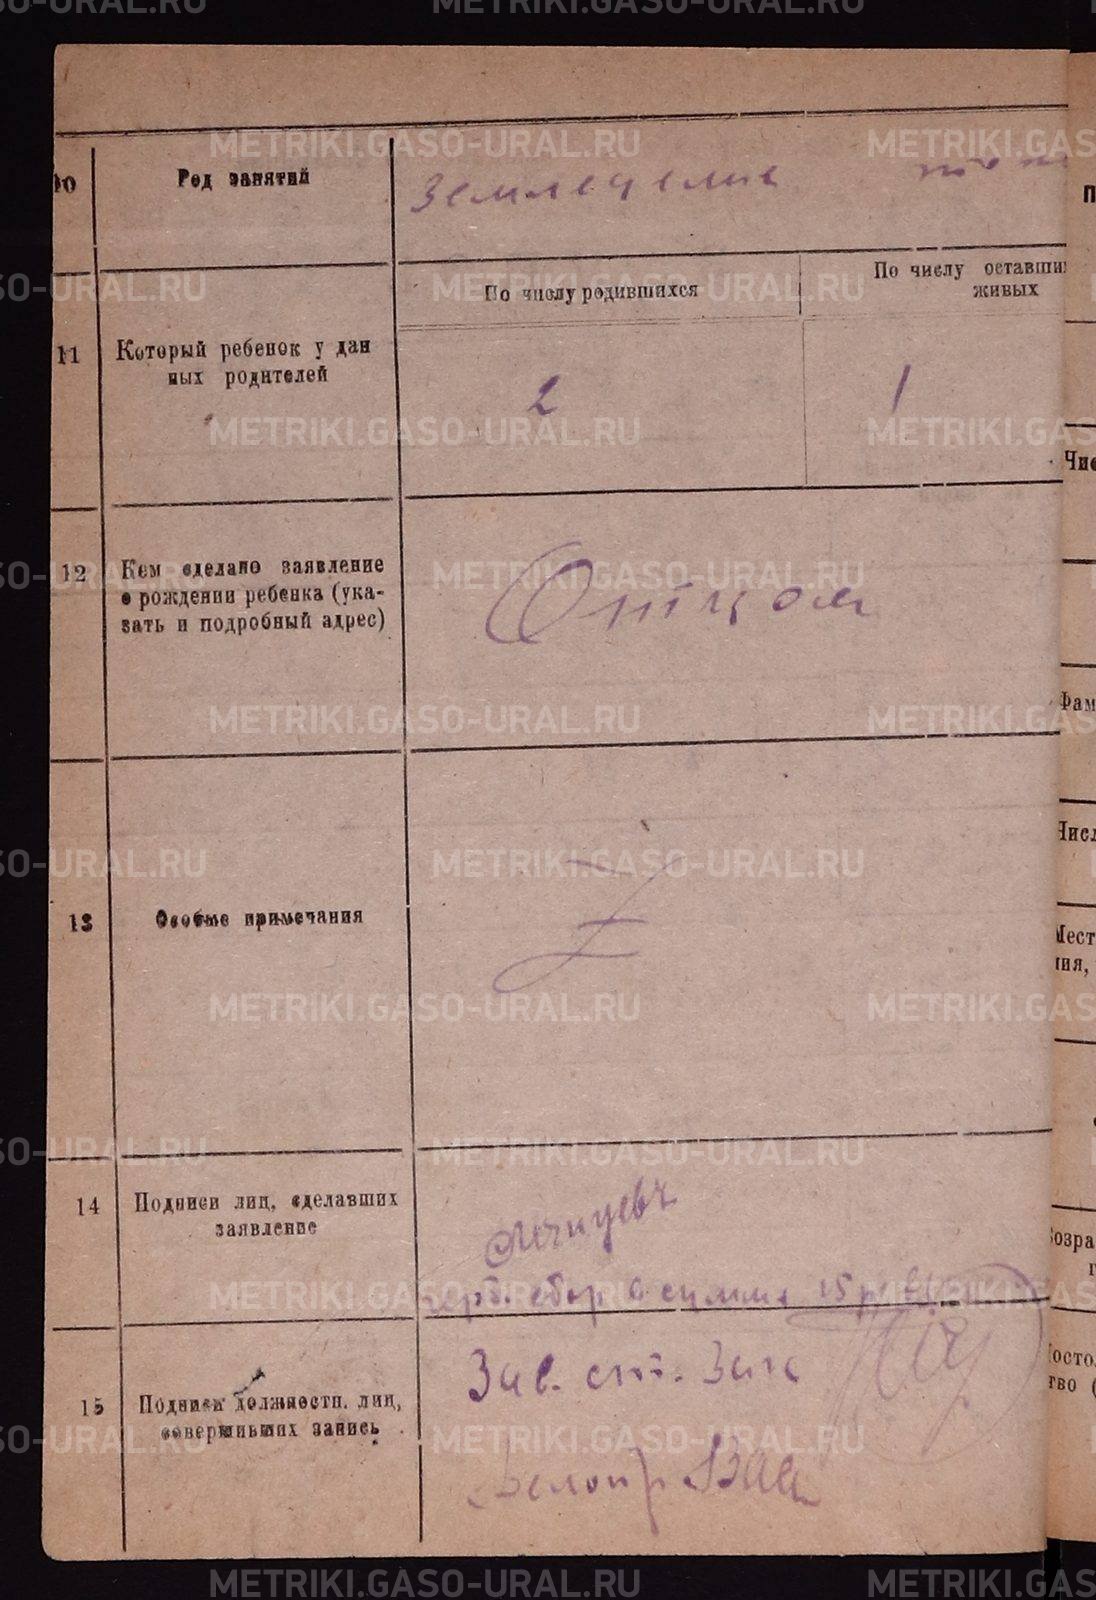 METRIKI.GASO-URAL.RU
10
Род занятий
Земледелие
то же
11
Который ребенок у дан
ных родителей
По числу родившихся
По числу оставши
живых
2
1
12
Кем сделано заявление
о рождении ребенка (ука-
зать и подробный адрес)
Отцом
13
Особые примечания
Z
14
Подписи лиц, сделавших
заявление
герб. сбор в сумме 15 р.
15
Подписи должностн. лиц,
совершивших запись
Зав. ст. Зап
Делопр
Чис
Фам
Числ
Мест
ния,
возра
г
Состо
тво (